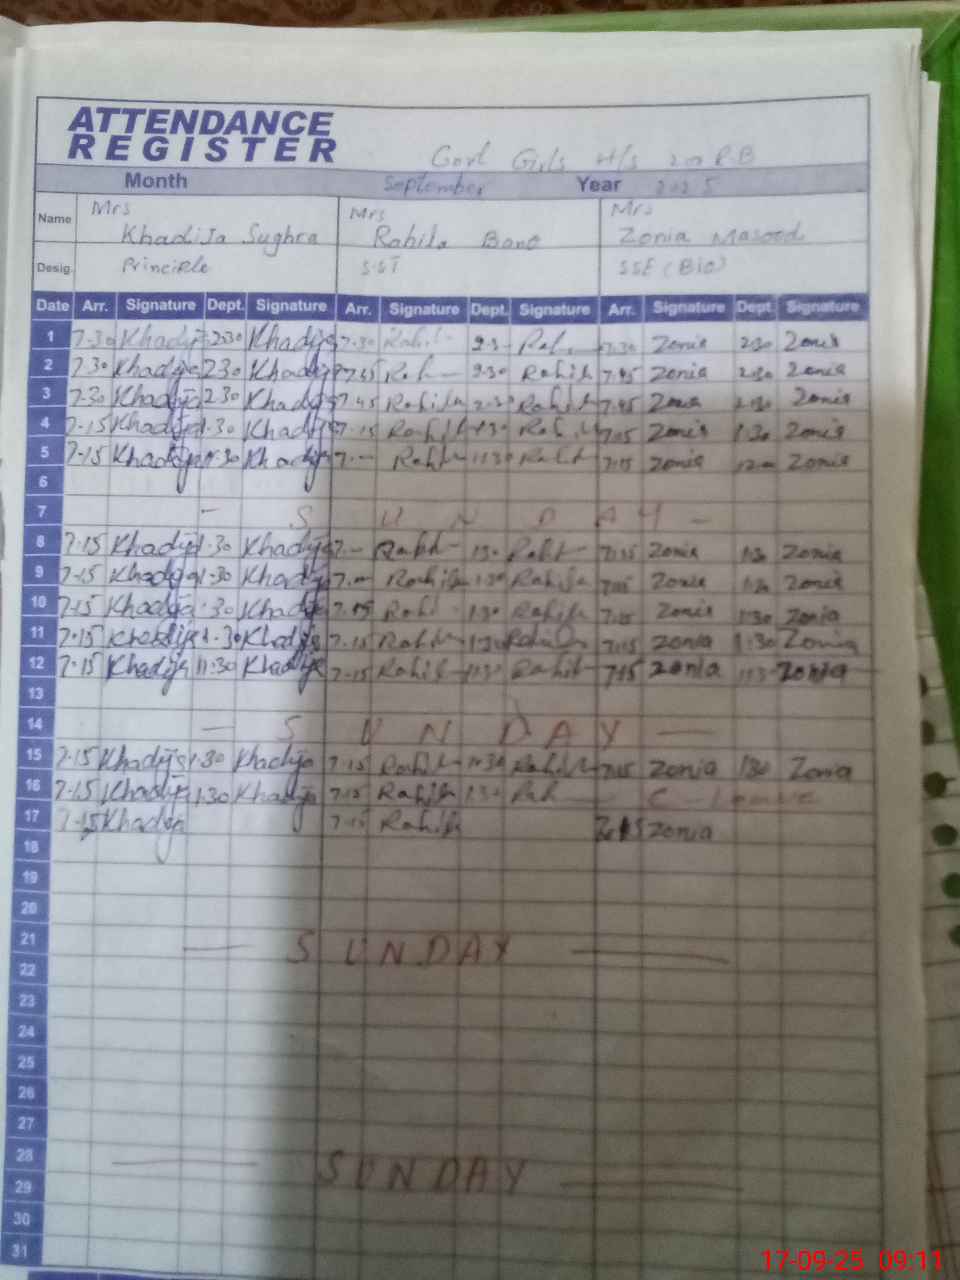 ATTENDANCE
REGISTER
Govt Girls H/s 200 R.B
Month September Year 2025
Name Mrs Khadija Sughra Mrs Rahila Bano Mrs Zonia Masood
Desig. Principle S.S.T SSE (Bio)
Date Arr. Signature Dept. Signature Arr. Signature Dept. Signature Arr. Signature Dept. Signature
1 7.30 Khadija 2:30 Khadija 7.30 Rahil 2.3 Rah 7.30 Zonia 2:30 Zonia
2 7.30 Khadija 2.30 Khadija 7.45 Rah 2.30 Rahila 7.45 Zonia 2:30 Zonia
3 7.30 Khadija 2.30 Khadija 7.45 Rahila 2.30 Rahila 7.45 Zonia 2.30 Zonia
4 7.15 Khadija 1.30 Khadija 7.15 Rahila 1.30 Rahila 7.15 Zonia 1.30 Zonia
5 7.15 Khadija 1.30 Khadija Rahila 11:30 Rahila 7.15 Zonia 12.00 Zonia
6
7 - S U N D A Y -
8 7.15 Khadija 1.30 Khadija Rahil 1.30 Rahil 7:15 Zonia 1.30 Zonia
9 7.15 Khadija 1.30 Khadija Rahila 1.30 Rahila Zonia 1.30 Zonia
10 7.15 Khadija 1.30 Khadija 7.15 Rahil 1.30 Rahila 7.15 Zonia 1.30 Zonia
11 7.15 Khadija 1.30 Khadija 7.15 Rahila 1.30 Rahila 7.15 Zonia 1:30 Zonia
12 7.15 Khadija 11:30 Khadija 7.15 Rahil 11:30 Rahil 7:15 Zonia 11.3 Zonia
13
14 - S U N D A Y -
15 7.15 Khadija 1.30 Khadija 7.15 Rahila 1:30 Rahila 7.15 Zonia 1.30 Zonia
16 7.15 Khadija 1.30 Khadija 7.15 Rahila 1.30 Rah C-leave
17 7.15 Khadija 7.15 Rahila 7:15 Zonia
18
19
20
21 - S U N D A Y -
22
23
24
25
26
27
28 - S U N D A Y -
29
30
31
17-09-25 09:11